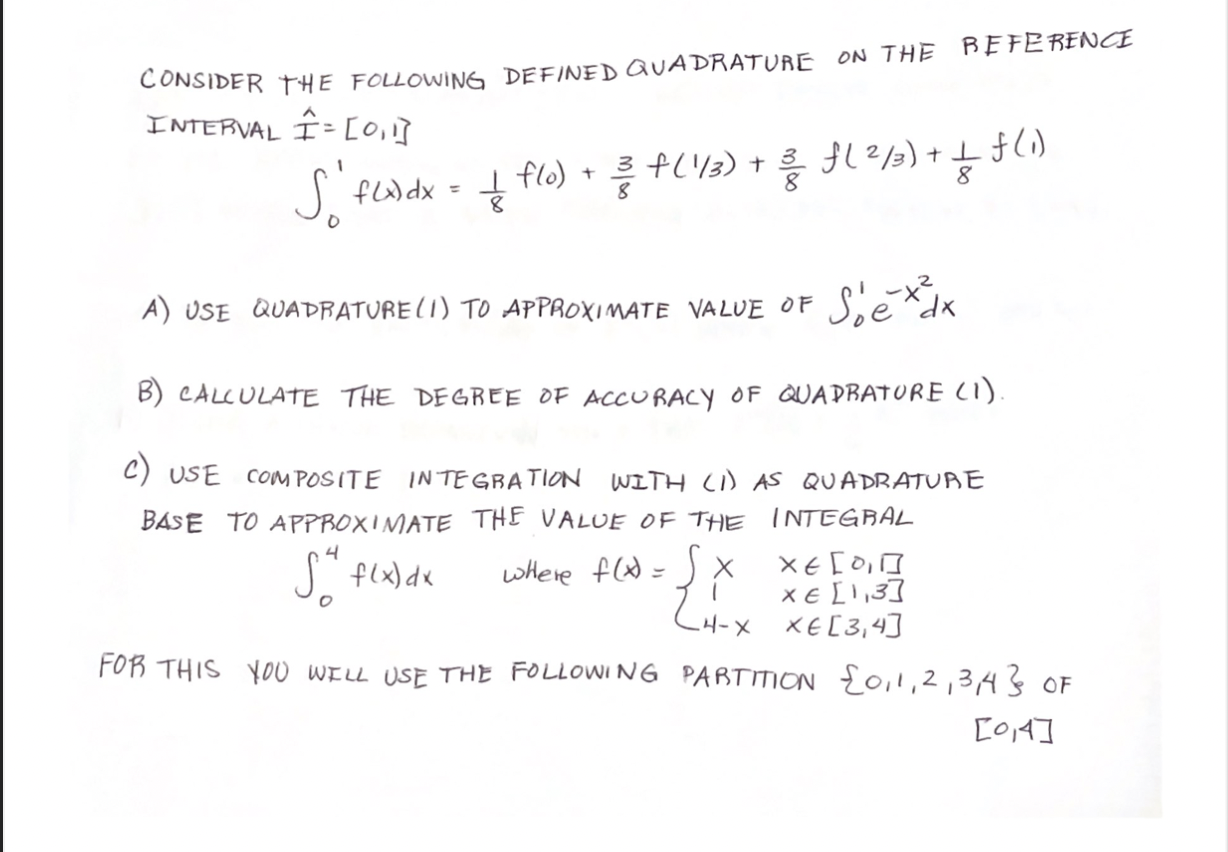 CONSIDER THE FOLLOWING DEFINED QUADRATURE ON THE REFERENCE
INTERVAL Î = [0,1]
∫₀¹ f(x)dx = 1/8 f(0) + 3/8 f(1/3) + 3/8 f(2/3) + 1/8 f(1)
A) USE QUADRATURE (1) TO APPROXIMATE VALUE OF ∫₀¹ e^(-x²) dx
B) CALCULATE THE DEGREE OF ACCURACY OF QUADRATURE (1).
C) USE COMPOSITE INTEGRATION WITH (1) AS QUADRATURE
BASE TO APPROXIMATE THE VALUE OF THE INTEGRAL
∫₀⁴ f(x)dx where f(x) = { x x ∈ [0,1]
1 x ∈ [1,3]
4-x x ∈ [3,4]
FOR THIS YOU WILL USE THE FOLLOWING PARTITION {0,1,2,3,4} OF
[0,4]